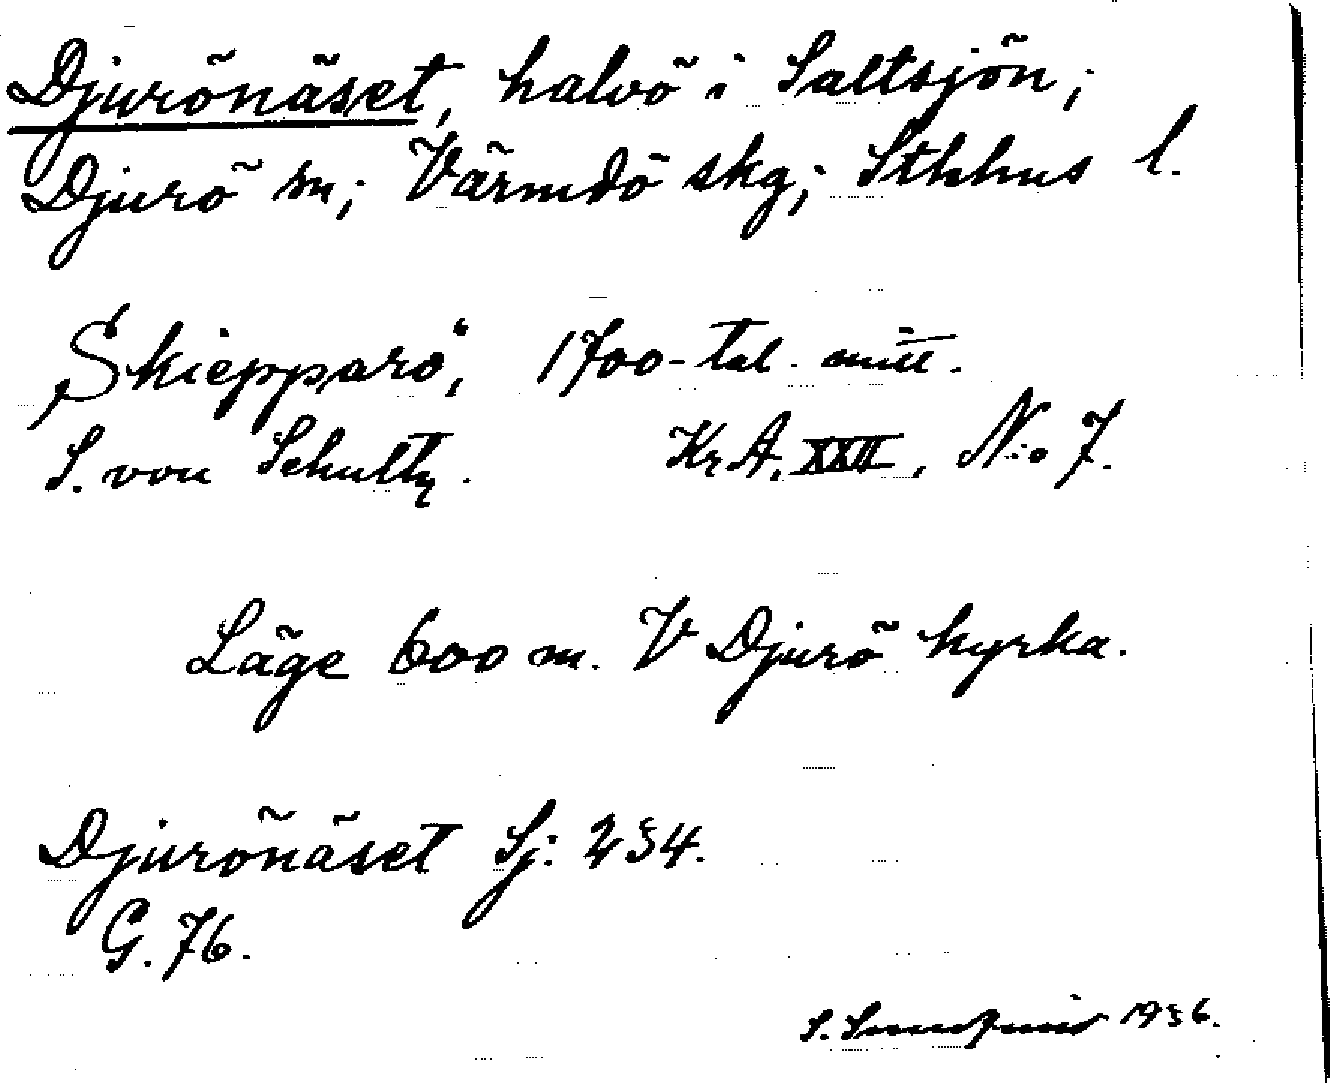 Djurönäset, halvö i Saltsjön;
Djurö sn; Värmdö skg; Sthhus l.
"Skiepparö", 1700-tal. mitt.
S. von Schultz. Kr. A. XXII, N:o 7.
Läge 600 m. V Djurö kyrka.
Djurönäset Sj: 234.
G. 76.
S. 1936.